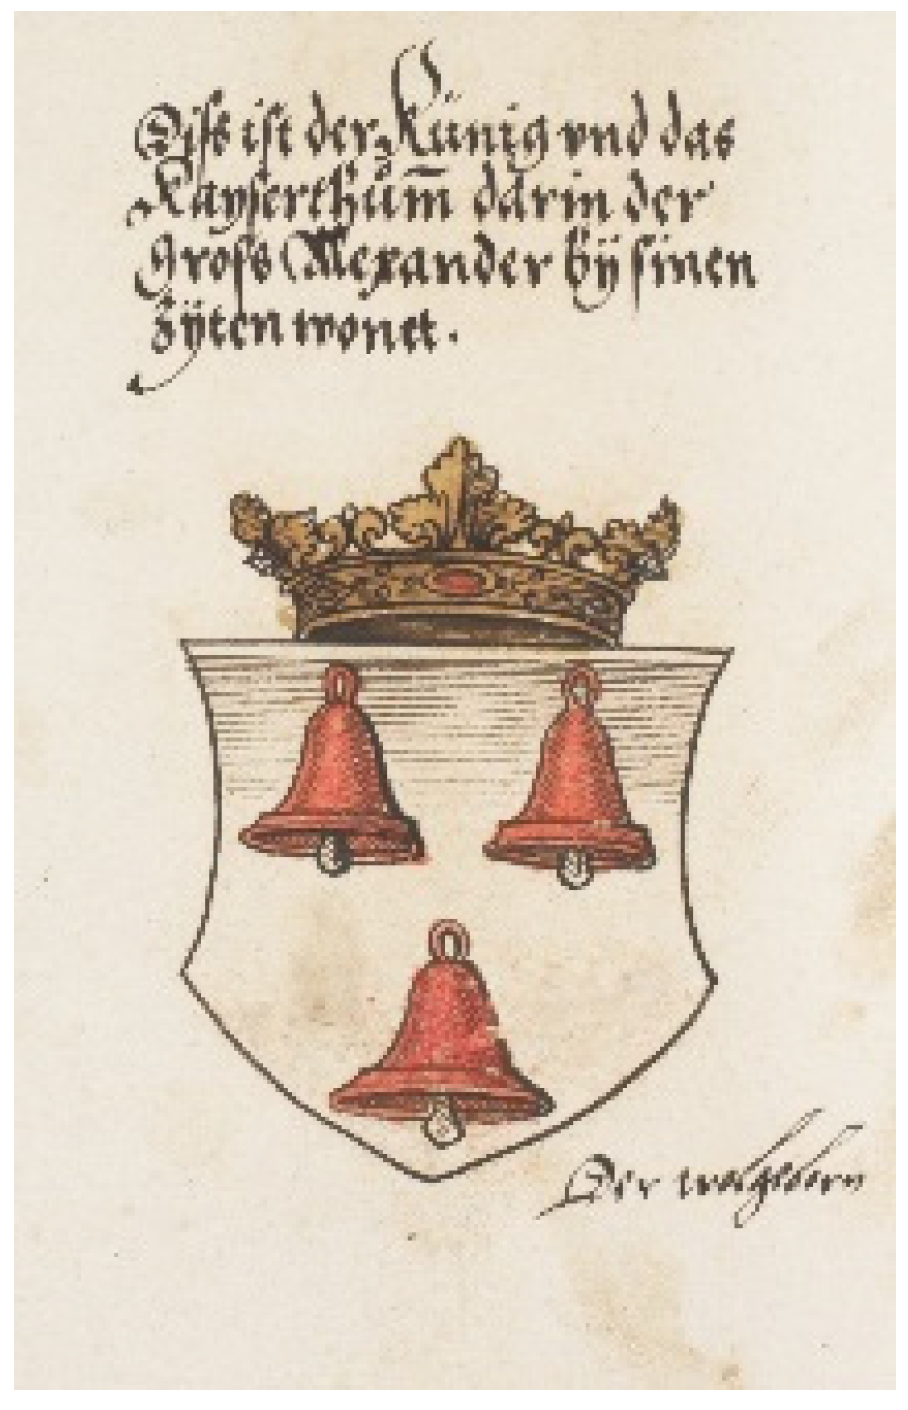 Diss ist der Künig vnd das
Kayserthům̄ darin der
gross Alexander bÿ sinen
zÿten wonet.
Der wolgeborn